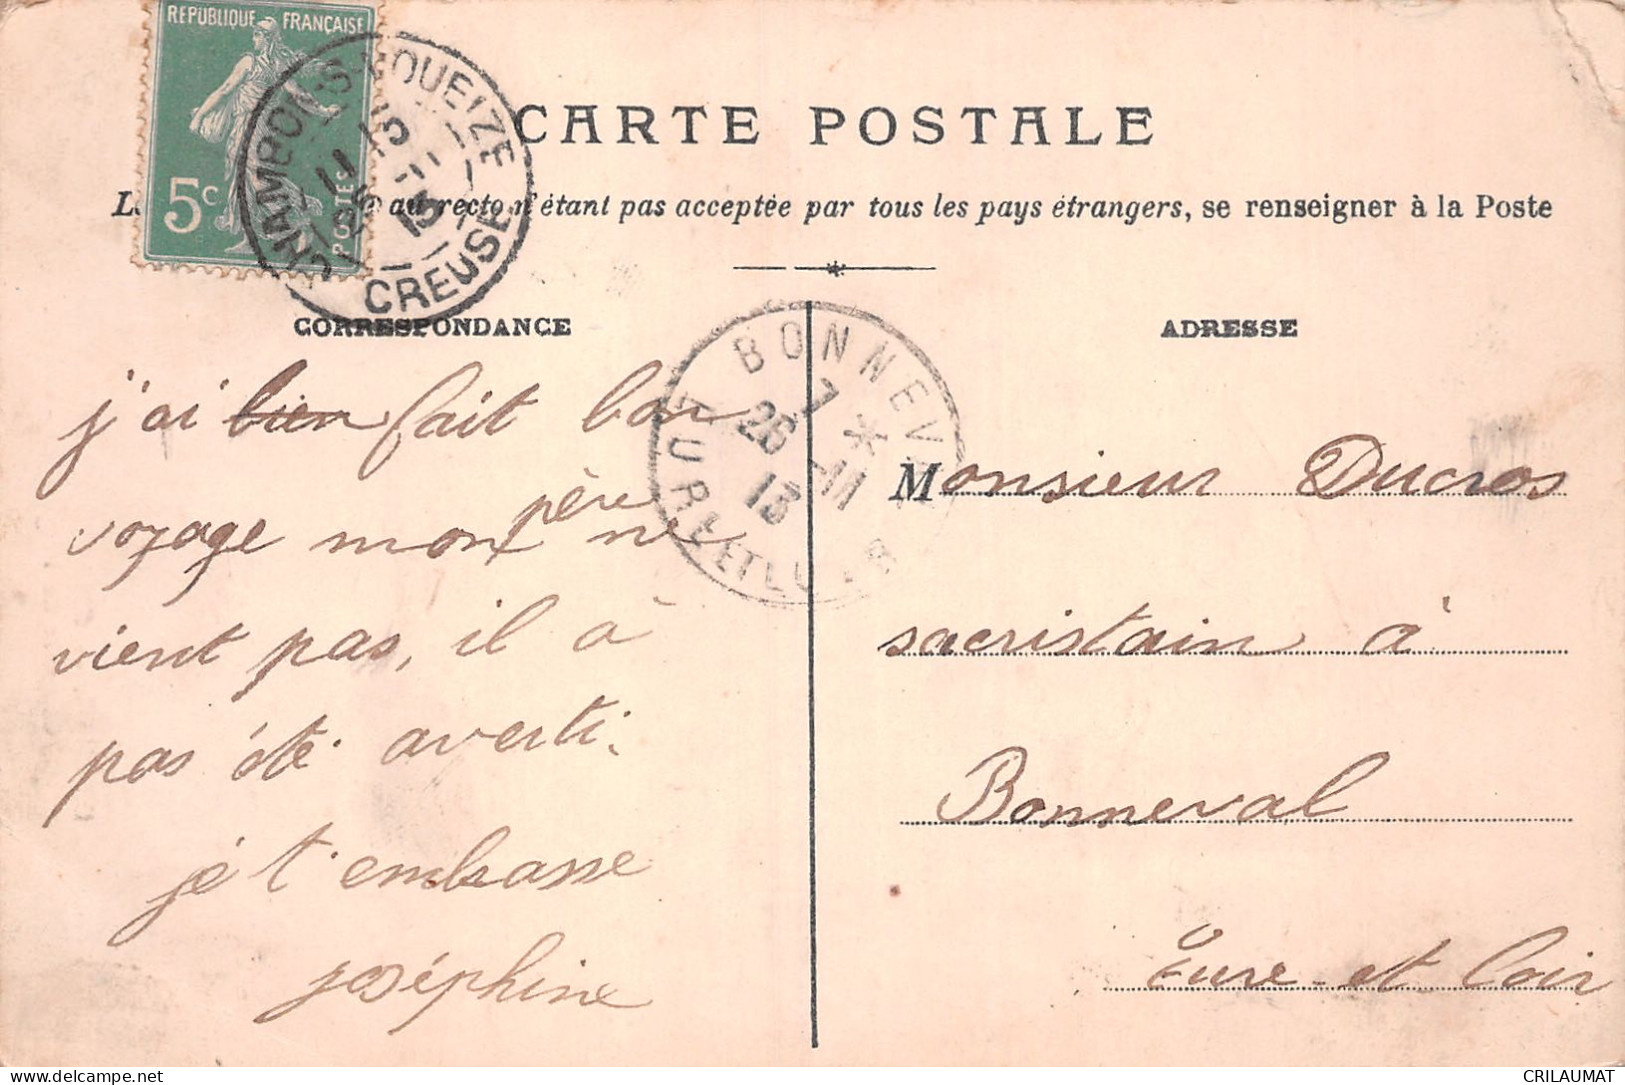 REPUBLIQUE FRANÇAISE
5c
POSTES
CHAMBON-S-VOUEIZE
11 15
25 -11
13
CREUSE
CARTE POSTALE
au recto n'étant pas acceptée par tous les pays étrangers, se renseigner à la Poste
CORRESPONDANCE
j'ai bien fait bon
voyage mon père ne
vient pas, il à
pas été averti.
je t'embasse
joséphine
BONNEVAL
7 *
26 -11
13
EURE ET LOIR
ADRESSE
Monsieur Ducros
sacristain à
Bonneval
Eure-et Loir
delcampe.net
CRILAUMAT